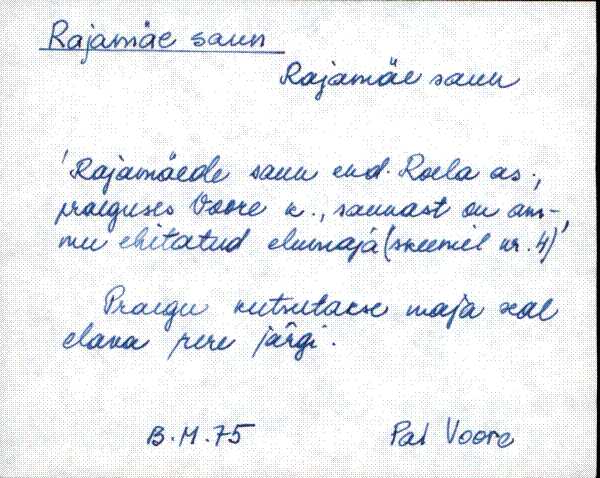 Rajamäe saun
Rajamäe saun
'Rajamäede saun end. Roela as.,
praeguses Voore k., saunast on am-
mu ehitatud elumaja (skeemil nr. 4)'
Praegu kutsutakse maja seal
elava pere järgi.
B.M.75 Pal Voore